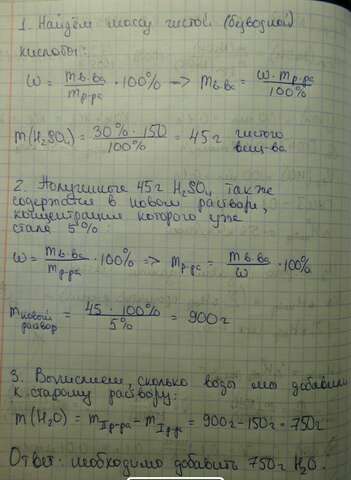 1. Найдём массу чистой (безводной)
кислоты:
ω = m в-ва / m р-ра · 100% —> m в-ва = ω · m р-ра / 100%
m(H₂SO₄) = 30% · 150 / 100% = 45 г чистого
вещ-ва
2. Полученные 45 г H₂SO₄ также
содержатся в новом растворе,
концентрация которого уже
стала 5%:
ω = m в-ва / m р-ра · 100% => m р-ра = m в-ва / ω · 100%
m новый раствор = 45 · 100% / 5% = 900 г
3. Вычислим, сколько воды мы добавили
к старому раствору:
m(H₂O) = m II р-ра - m I р-р = 900 г - 150 г = 750 г
Ответ: необходимо добавить 750 г H₂O.